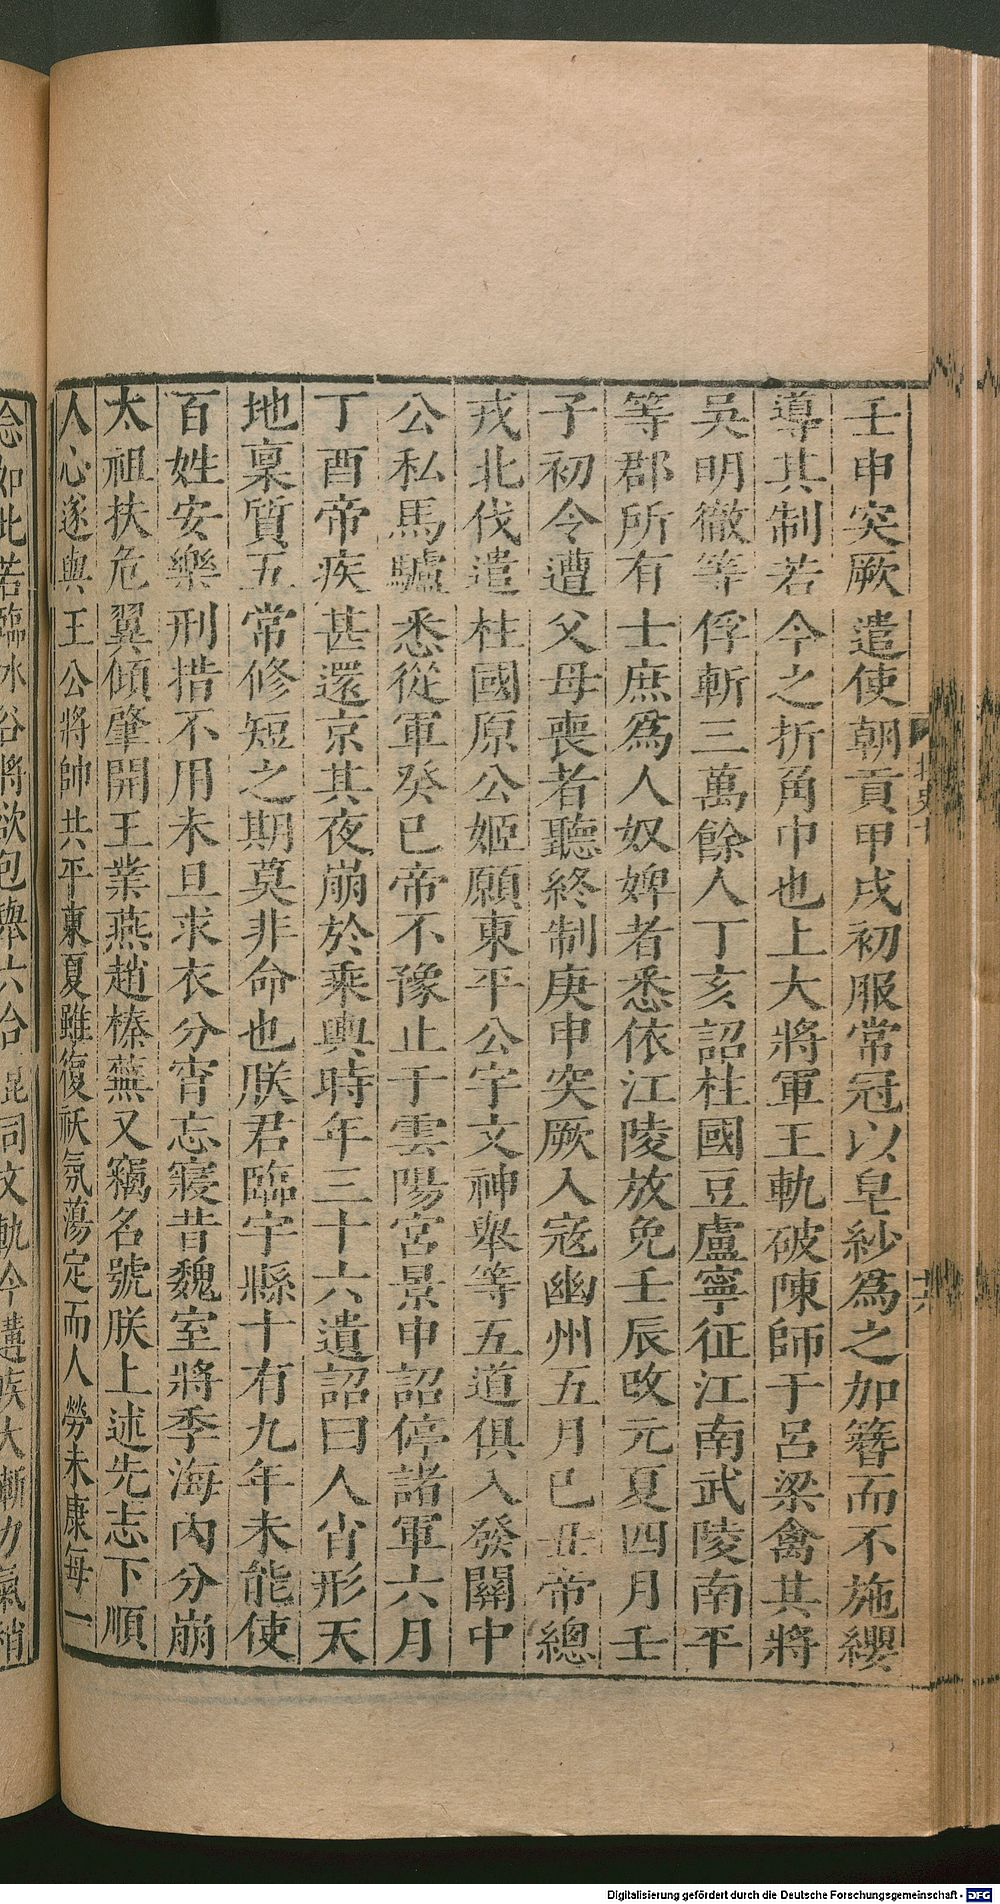 壬申突厥遣使朝貢甲戌初服常冠以皂紗爲之加簪而不施纓
導其制若今之折角巾也上大將軍王軌破陳師于呂梁禽其將
吳明徹等俘斬三萬餘人丁亥詔柱國豆盧寧征江南武陵南平
等郡所有士庶爲人奴婢者悉依江陵放免壬辰改元夏四月壬
子初令遭父母喪者聽終制庚申突厥入寇幽州五月己丑帝總
戎北伐遣柱國原公姬願東平公宇文神舉等五道俱入發關中
公私馬驢悉從軍癸巳帝不豫止于雲陽宮景申詔停諸軍六月
丁酉帝疾甚還京其夜崩於乘輿時年三十六遺詔曰人肖形天
地稟質五常修短之期莫非命也朕君臨宇縣十有九年未能使
百姓安樂刑措不用未旦求衣分宵忘寢昔魏室將季海內分崩
太祖扶危翼傾肇開王業燕趙榛蕪又竊名號朕上述先志下順
人心遂與王公將帥共平東夏雖復祅氛蕩定而人勞未康每一
念如此若臨冰谷將欲包舉六合混同文軌今遘疾大漸力氣稍
北史十
十六
Digitalisierung gefördert durch die Deutsche Forschungsgemeinschaft - DFG